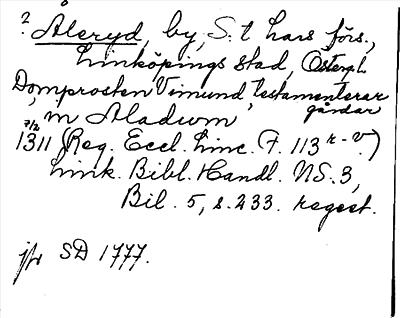 ? Åleryd, by, S:t Lars förs.,
Linköpings stad, Östergl.
Domprosten Vimund testamenterar
gårdar
in Aladum
7/2
1311 (Reg. Eccl. Linc. F. 113 r-v.)
Link. Bibl. Handl. NS. 3,
Bil. 5, s. 233. regest.
jfr SD 1777.